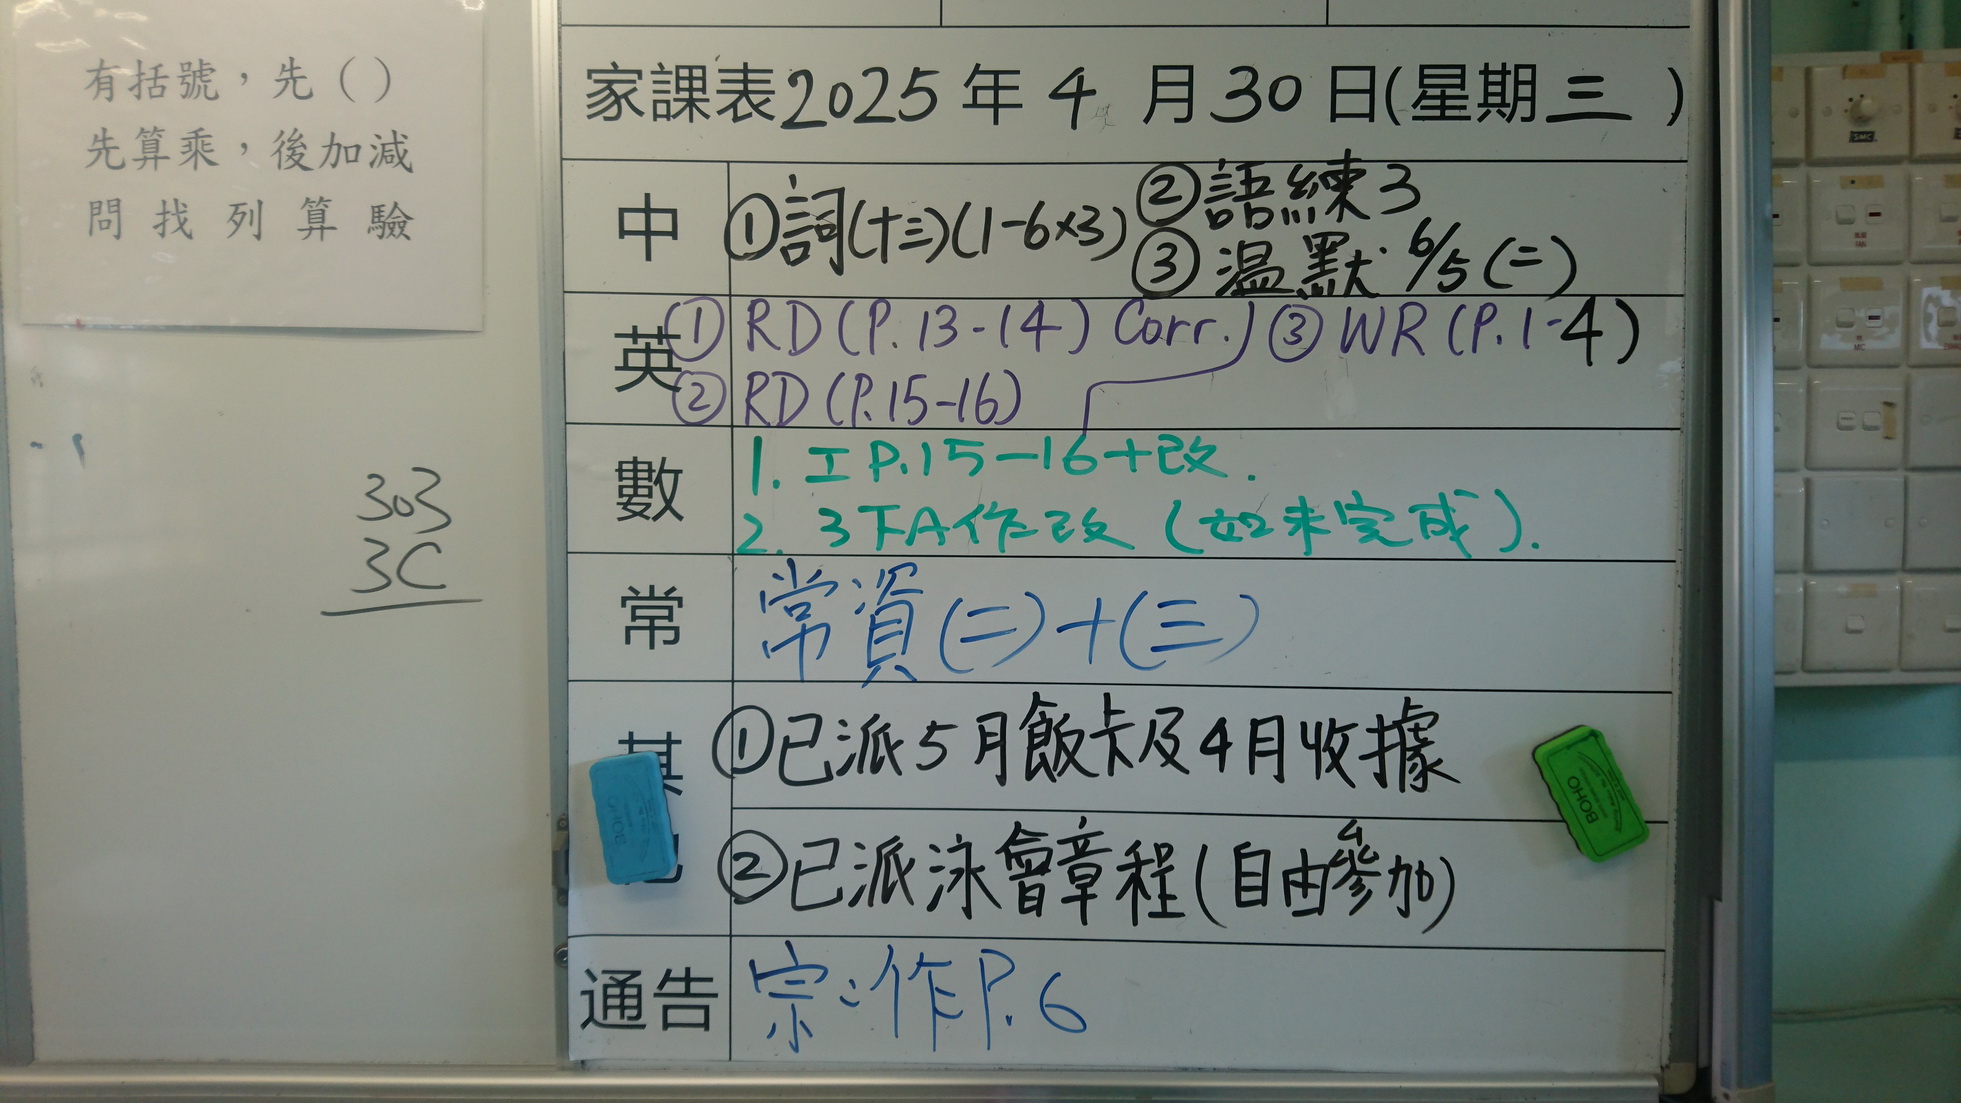 有括號，先（）
先算乘，後加減
問找列算驗
303
3C
家課表2025年4月30日(星期三)
中
①詞(十三)(1-6×3)
②語練3
③溫默6/5(二)
英
①RD(P.13-14) Corr.
②RD(P.15-16)
③WR(P.1-4)
數
1. 工P.15-16+改.
2. 3下A作改(如未完成).
常
常資(二)+(三)
其他
①已派5月飯卡及4月收據
②已派泳會章程(自由參加)
通告
宗:作P.6
BOHO
BOHO
SMC